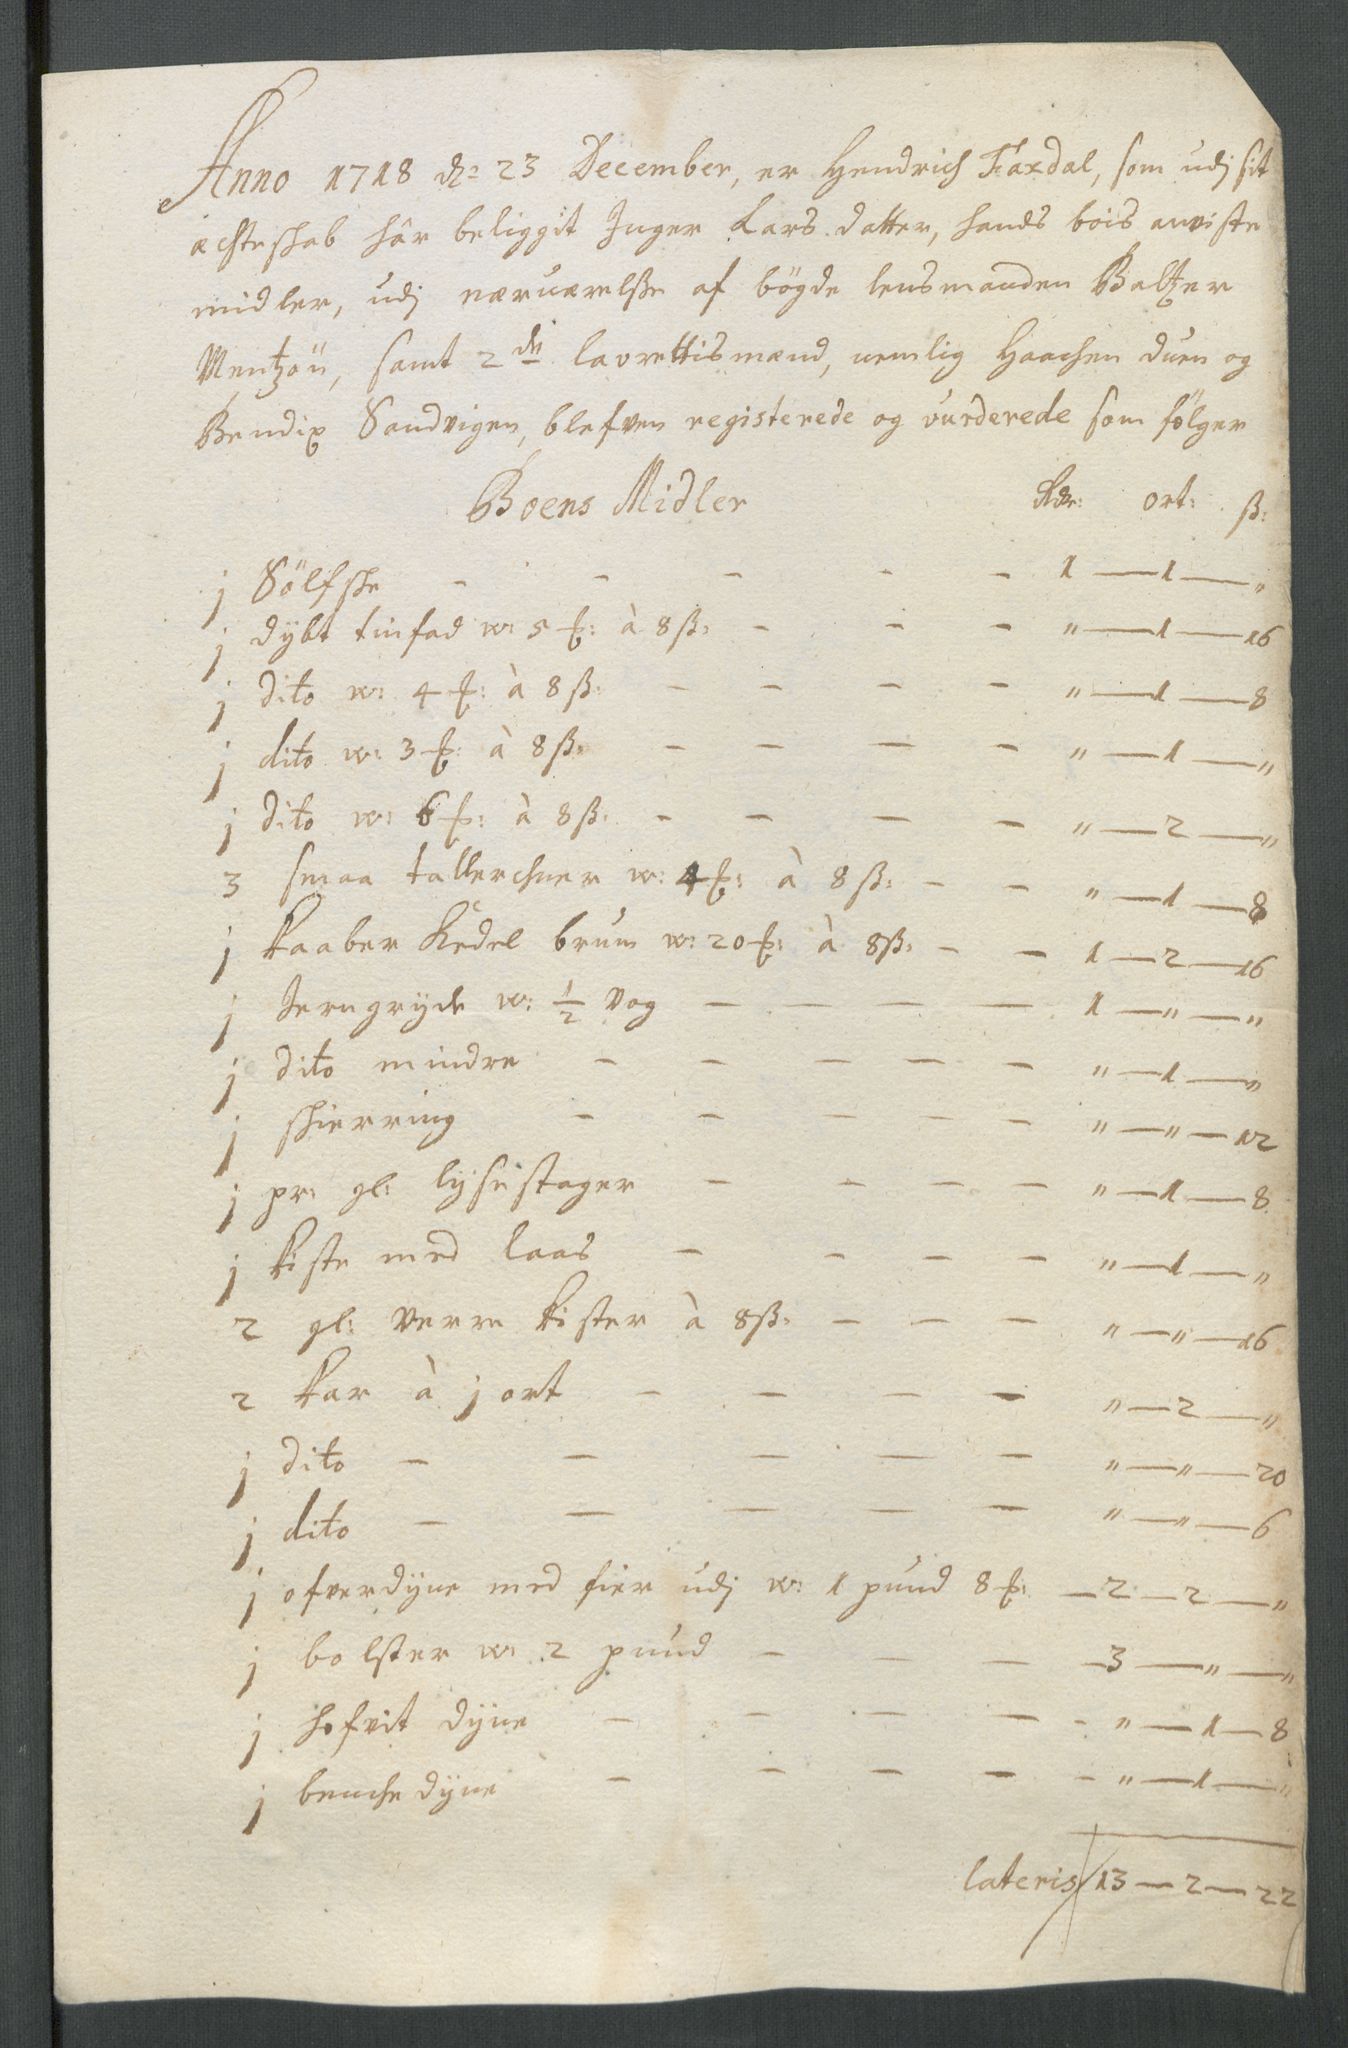 Anno 1718 dn: 23 December, er Hendrich Faxdal, som udj sit
ægteskab hâr beliggit Inger Lars datter, hands bois anviste
midler, udj nærværelsse af böygde lensmanden Baltzer
Mentzön, samt 2de lavrettismænd, nemlig Haachen duen og
Bendix Sandvigen, blefven registerede og vurderede som fölger
Boens Midler Rdr: ort: ß:
j Sölfske - - - - - 1 — 1 — "
j dybt tinfad w: 5 ℔: à 8 ß: - - - " — 1 — 16
j dito w: 4 ℔: à 8 ß: - - - - " — 1 — 8
j dito w: 3 ℔: à 8 ß: - - - - " — 1 — "
j dito w: 6 ℔: à 8 ß: - - - - " — 2 — "
3 smaa tallerchner w: 4 ℔: à 8 ß: - - " — 1 — 8
j kaaber Kedel brum w: 20 ℔: à 8 ß: - - 1 — 2 — 16
j Jerngryde w: ½ vog - - - - 1 — " — "
j dito mindre - - - - - " — 1 — "
j skierring - - - - - " — " — 12
j pr: gl: lysestager - - - - " — 1 — 8
j kiste med laas - - - - " — 1 — "
2 gl: verre kister à 8 ß: - - - " — " — 16
2 kar à j ort - - - - " — 2 — "
j dito - - - - - " — " — 20
j dito - - - - - " — " — 6
j ofverdyne med fier udj w: 1 pund 8 ℔: — 2 — 2 — "
j bolster w: 2 pund - - - - 3 — " — "
j hofvit dyne - - - - - " — 1 — 8
j benche dyne - - - - - " — 1 — "
lateris 13 — 2 — 22